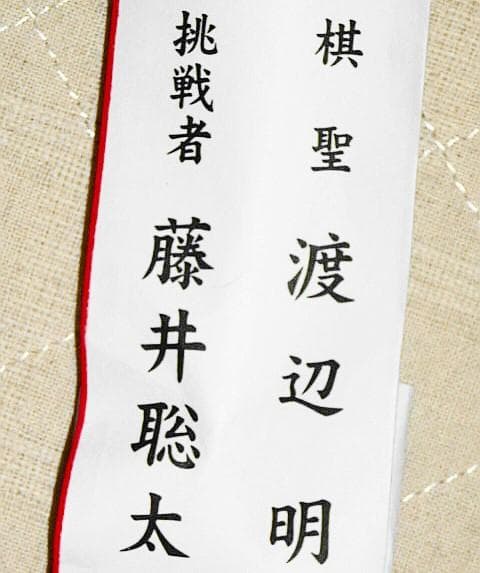 棋聖 渡辺明
挑戦者 藤井聡太